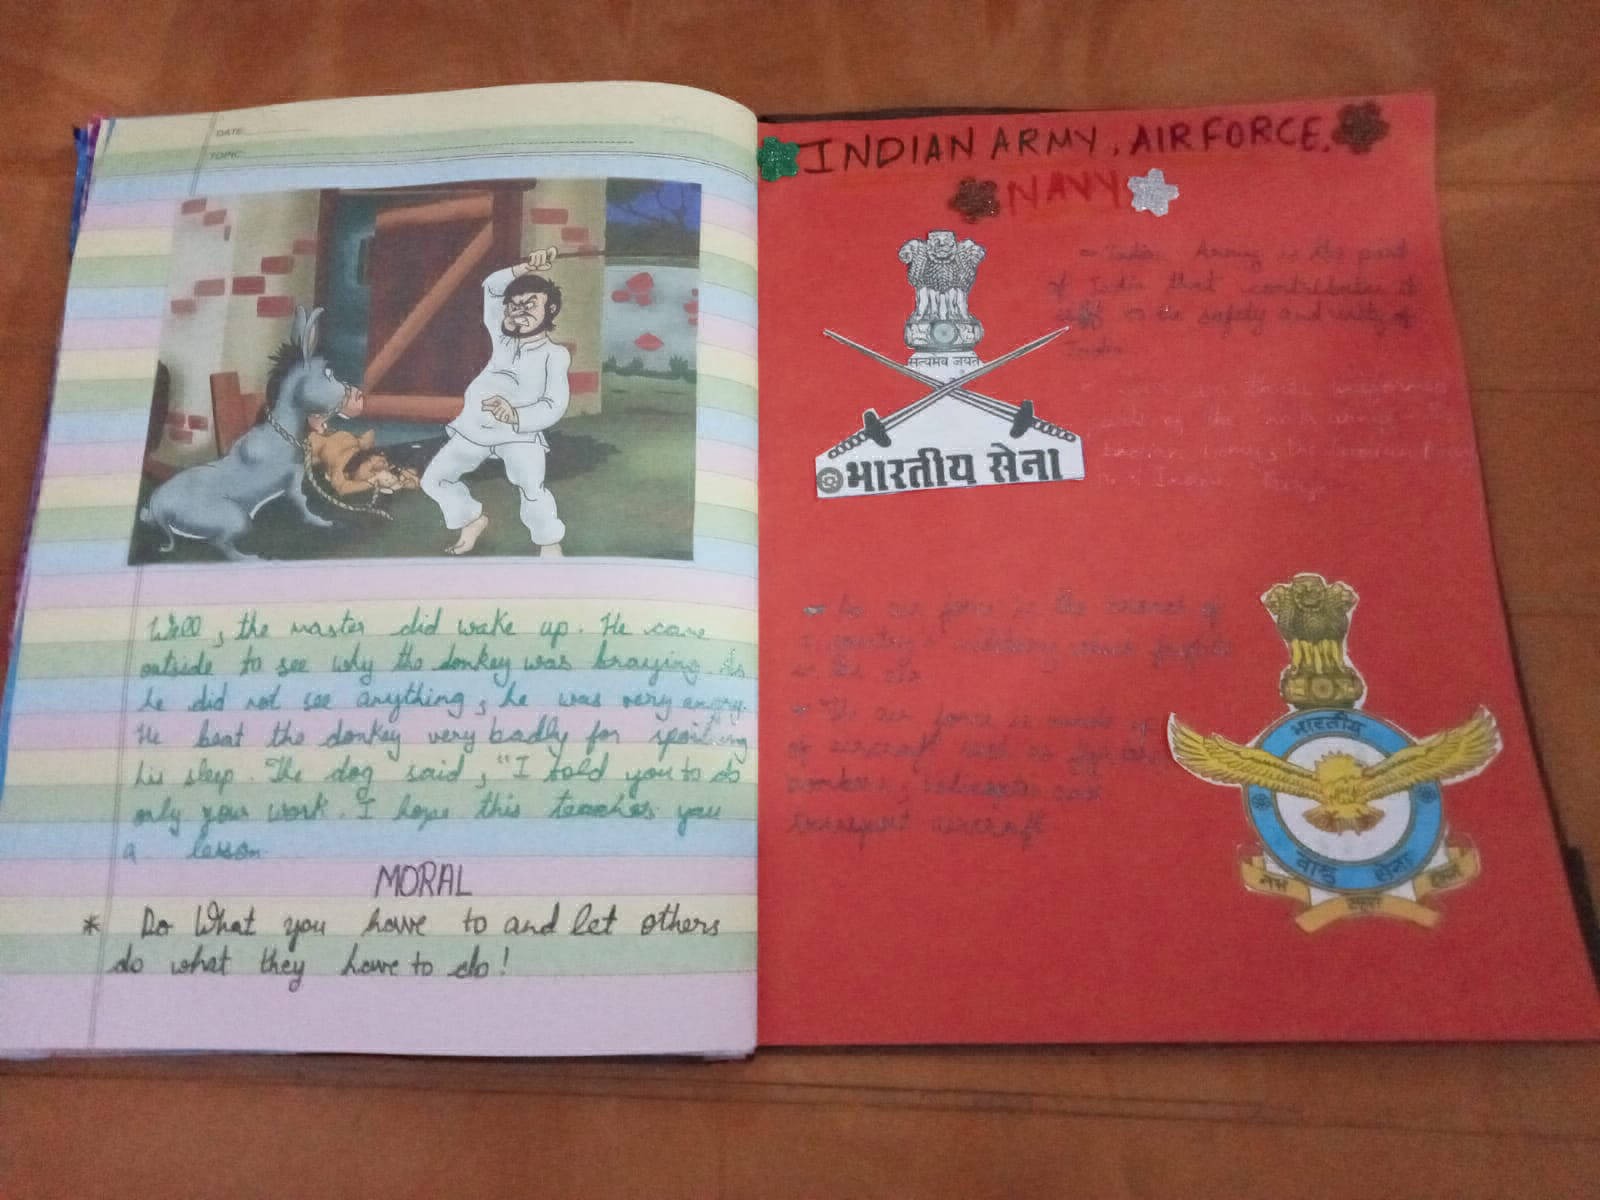 DATE:
TOPIC:
Well, the master did wake up. He came
outside to see why the donkey was braying. As
he did not see anything, he was very angry.
He beat the donkey very badly for spoiling
his sleep. The dog said, "I told you to do
only your work. I hope this teaches you
a lesson
MORAL
* Do What you have to and let others
do what they have to do!
INDIAN ARMY, AIRFORCE,
NAVY
Indian Army is the part
of India that contributes it
self to the safety and unity of
India
सत्यमेव जयते
भारतीय सेना
the
Indian Army, the Indian
Indian
An air force is the
a country's military which fights
in the air
The air force is made up
of aircraft used as fighters
bombers, helicopters and
transport aircraft
भारतीय
वायु सेना
नभः स्पृशं दीप्तम्